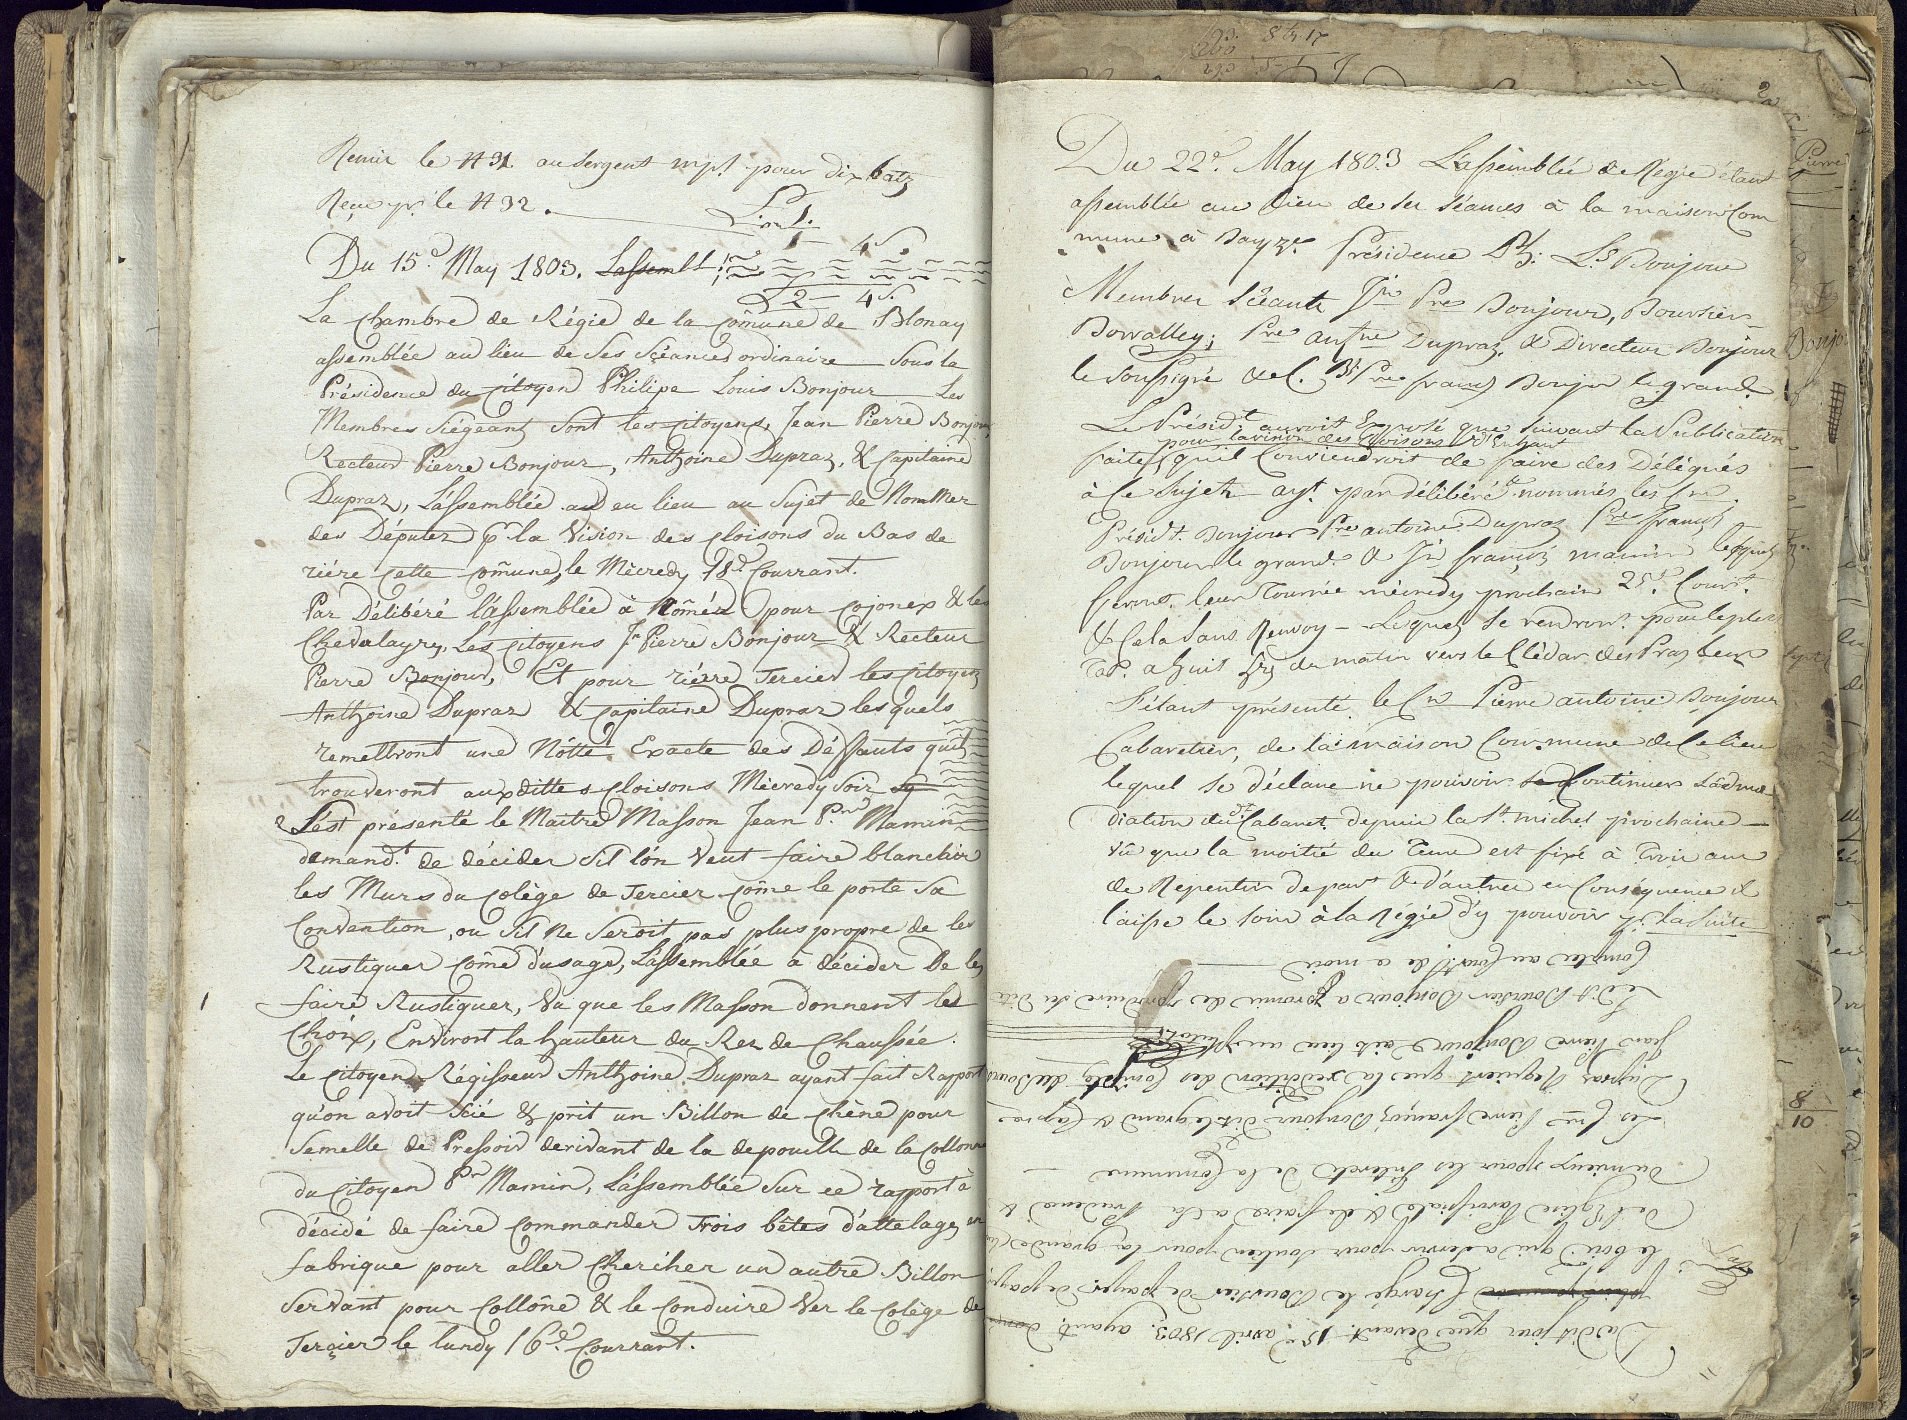 Remis le N 31 au Sergent mjr pour dix batz
Reçu pr le N 32. L. on 1.
1 – 4 S.
Du 15e May 1803. Lassembl
L 2 – 4 S.
La Chambre de Régie de la Comune de Blonay
assemblée au lieu de Ses Scéances ordinaire Sous la
Présidence du citoyen Philipe Louis Bonjour Les
Membres Siégeant Sont les citoyens, Jean Pierre Bonjour,
Recteur Pierre Bonjour, Anthoine Dupraz, & Capitaine
Dupraz, L'assemblée au eu lieu au Sujet de Nommer
des Députez pr la Vision des cloisons du Bas de
riére Cette comune, le Mecredy 18e Courrant.
Par Délibéré l'assemblée à Noméz pour Cojonex & les
Chevalayre, Les citoyens Jn Pierre Bonjour & Recteur
Pierre Bonjour, Et pour riére Tercier les citoyens
Anthoine Dupraz & capitaine Dupraz lesquels
remettront une Nôtte Exacte des Déffauts quils
trouveront aux ditte s cloisons Mecredy Soir
S'est présenté le Maitre Masson Jean Pre Mamin
demandt de décider Sil l'on Veut faire blanchir
les Murs du Colège de Tercier côme le porte Sa
Convention, ou Sil ne Seroit pas plus propre de les
Rustiquer côme d'usage, L'assemblée à décider De les
faire Rustiquer, Vu que les Masson donnent le
Choix, Environt la hauteur du Rez de Chaussée.
Le Citoyen Régisseur Anthoine Dupraz ayant fait Rapport
qu'on avoit Scié & prit un Billon de Chêne pour
Semelle de Pressoir derivant de la depouille de la Collonne
du Citoyen Pre Mamin, L'assemblée Sur ce rapport à
décidé de faire Commander Trois bêtes d'attelage, en
fabrique pour aller Chercher un autre Billon
Servant pour Collône & le Conduire Ver le Colège de
Terçier le lundy 16e Courrant.
Du 22e May 1803 L'assemblée de Régie étant
assemblée au Lieu de Ses Séances à la maison Com
mune à Présidence Ph: Ls Bonjour
Membres Séeants Jn Pre Bonjour, Boursier
Borvalley; Pre antne Dupraz, & Directeur Bonjour
le Soussigné & C. Pre franç Bonjour le grand
Le Présidt auroit Exposé que Suivant la Publication
pour la vision des Cloisons
faite, qu'il Conviendroit de faire des Délégués
à Ce Sujet ayt par délibéré nommés les Cne
Présidt Bonjour Pre antoine Dupraz Pre françs
Bonjour le grand & Jn françois mamin lesquels
feront leur Tournée mécredy prochain 25e Court.
& Cela Sans Renvoy – Lesquels Se rendront pour le plus
Tot. a huit hrs du matin vers le Clédar des Praz
S'étant présenté le Cn Pierre antoine Bonjour
Cabaretier, de la maison Commune de Ce lieu
lequel Se déclare ne pouvoir Continuer
diation du Cabaret depuis la St michel prochaine
vû que la moitié du Terme est fixé à Trois ans
de Repentir de part & d'autre en Conséquence il
laisse le Soin à la Régie d'y pouvoir pr la Suite
Dudit jour que devant. 15e avril 1803. ayant
Chargé le Boursier de payer
le bois qui a servir pour Soutien pour la grande
de l'Eglise Paroissiale & de faire a la Prudence &
du mieux pour les Interets de la Commune
Les Cne Pierre françois Bonjour, dit le grand & Capne
Dupraz Requiert que la reddition des Comptes du Bours
Jean Pierre Bonjour aits lieu
Le dit Boursier Bonjour a promis de produire Ses dits
Comptes au Courrt de ce mois
Pierre
Bonjo
8
10